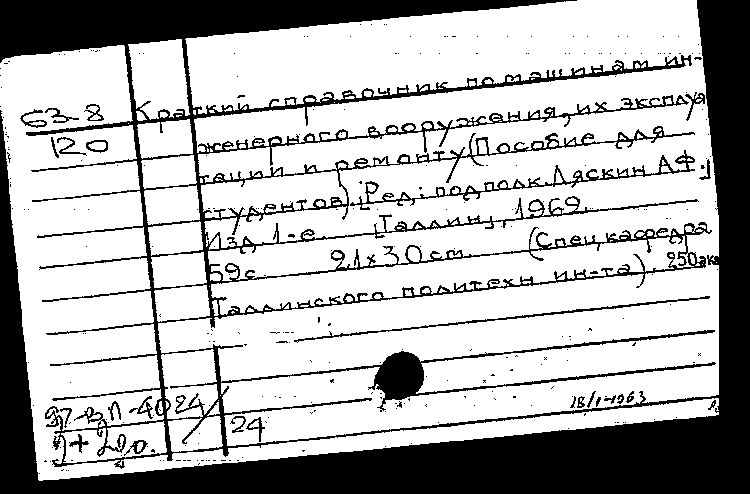 63-8 Краткий справочник по машинам ин-
120 женерного вооружения, их эксплуа
тации и ремонту (Пособие для
студентов). [Ред.: подполк. Ляскин А.Ф.]
Изд. 1-е. [Таллин], 1969.
59 с. 21х30 cm. (Спец. кафедра
Таллинского политехн. ин-та). 250 экз
4024/24
18/1-1963